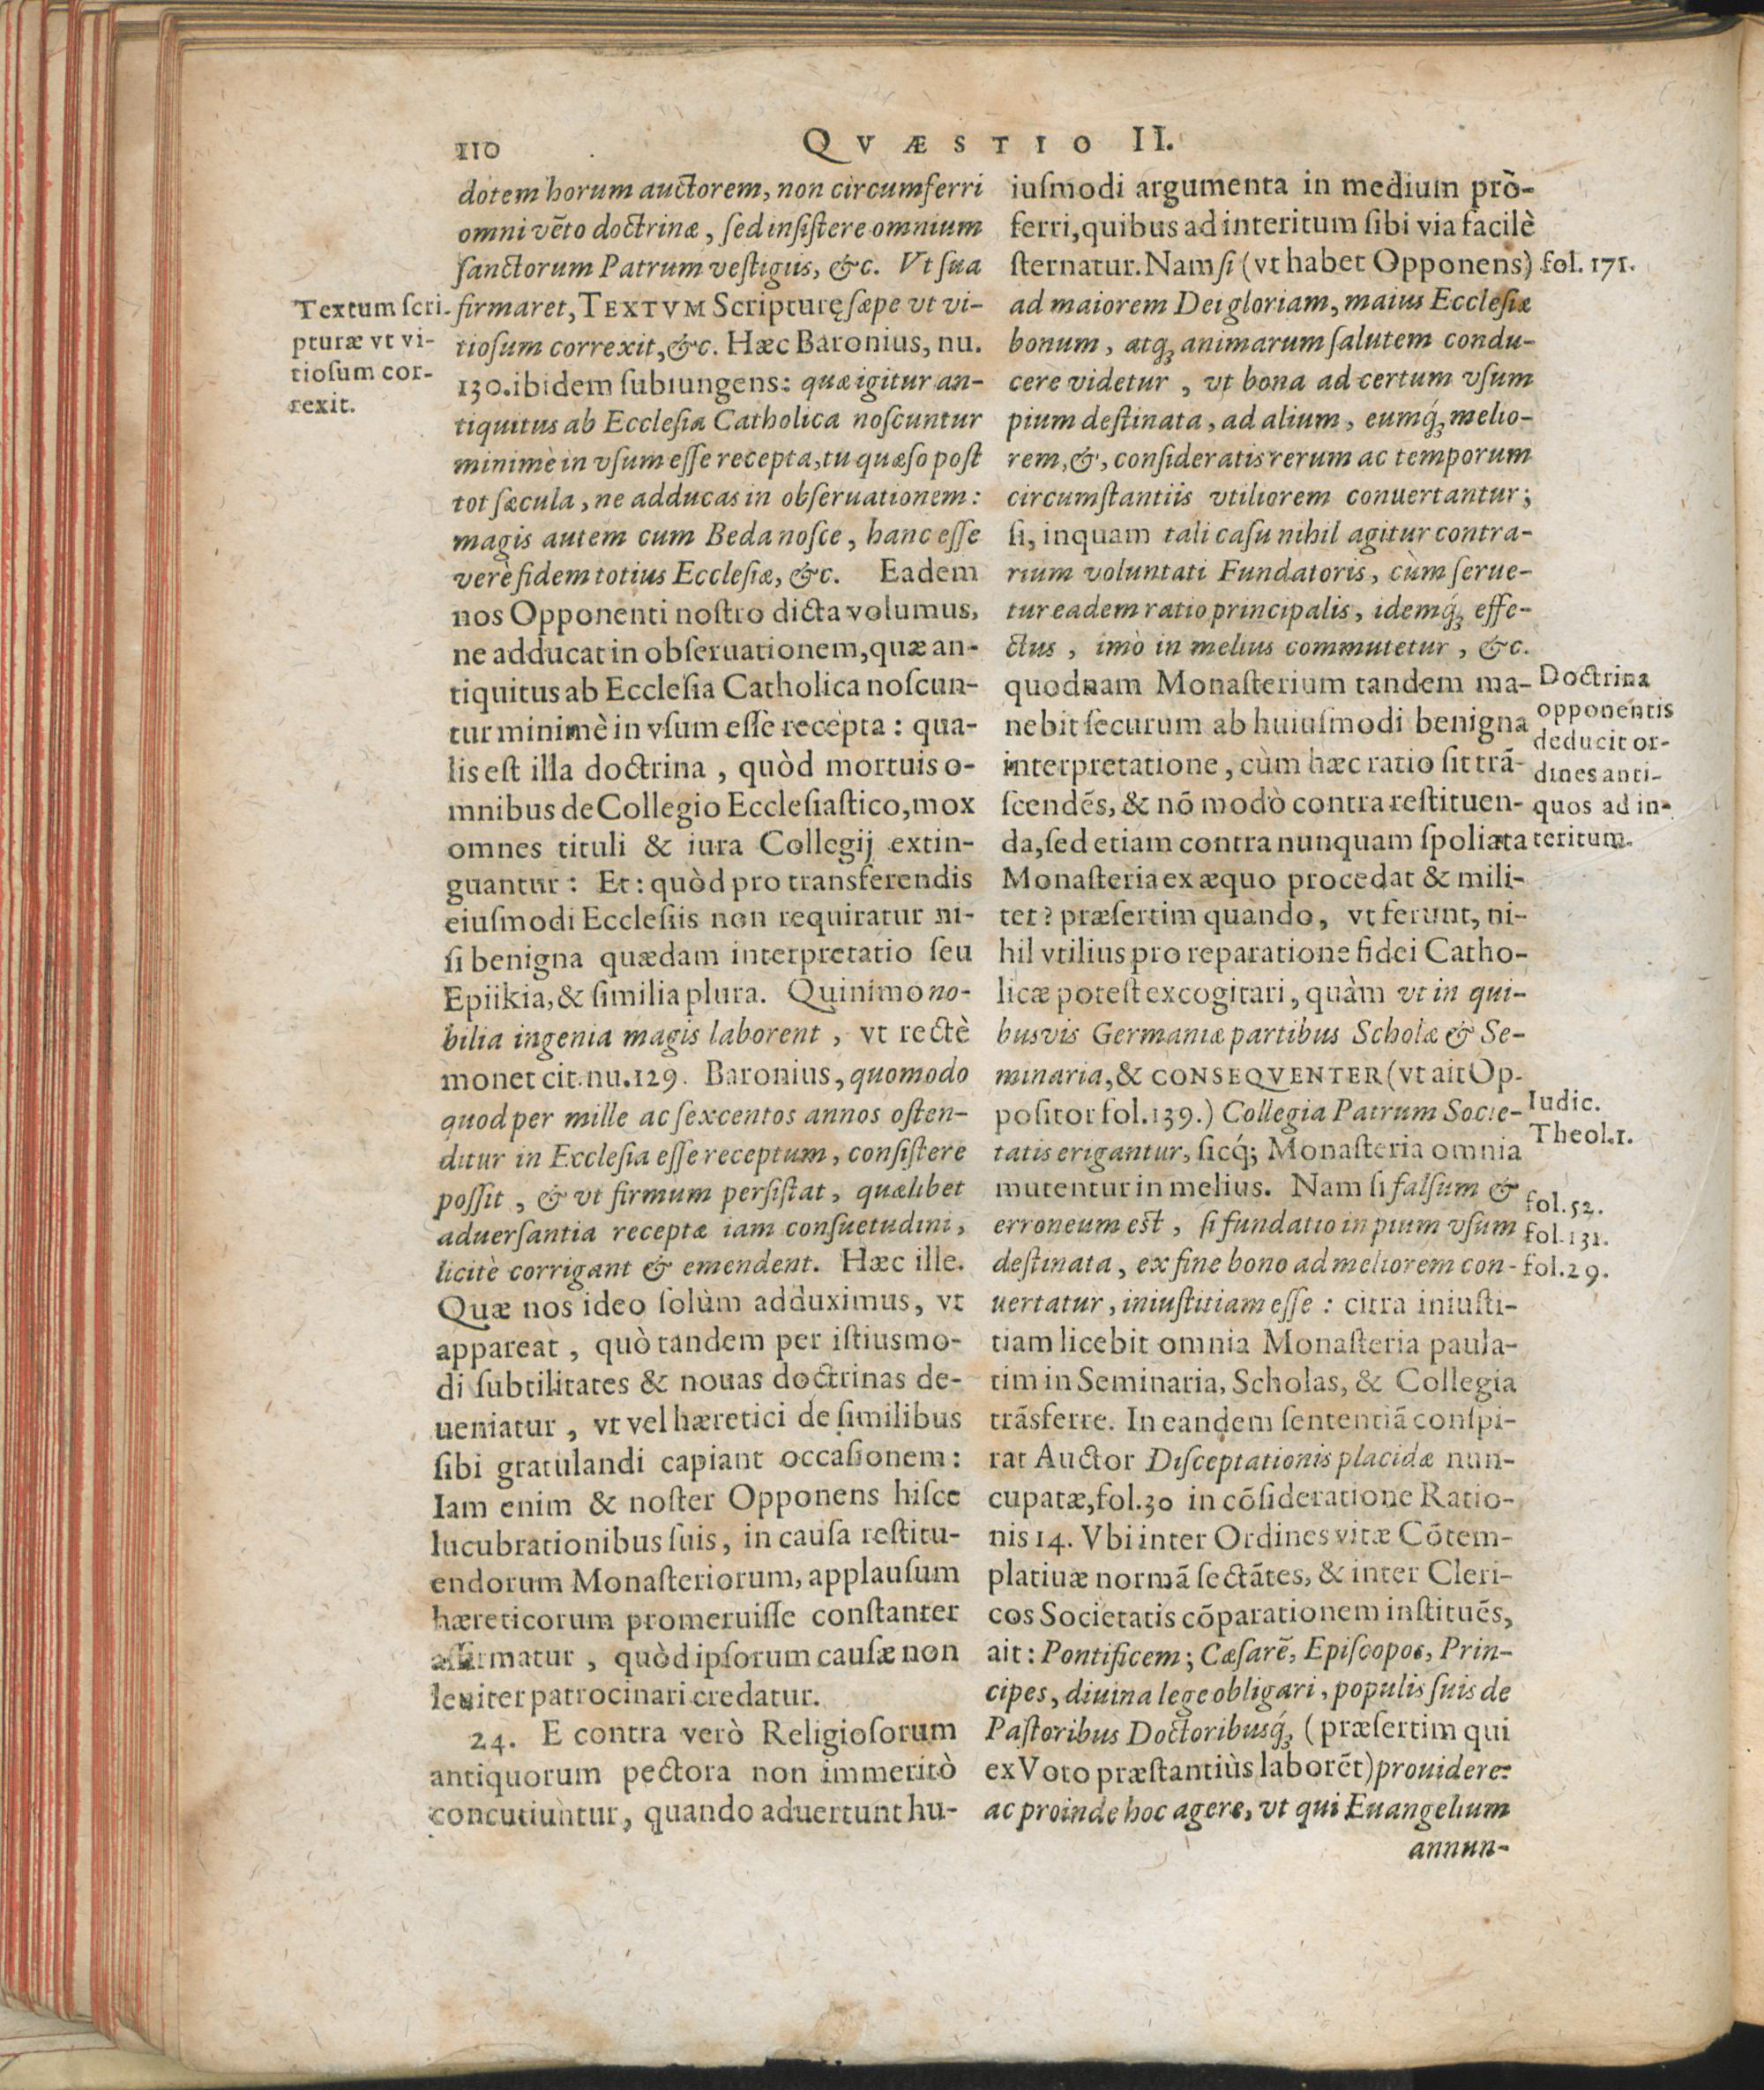 110
QVÆSTIO II.
dotem horum auctorem, non circumferri
omni vẽto doctrinæ, ſed inſiſtere omnium
ſanctorum Patrum veſtigiis, &c. Vt ſua
firmaret, TEXTVM Scripturę ſæpe vt vi-
tioſum correxit, &c. Hæc Baronius, nu.
130. ibidem ſubiungens: quæ igitur an-
tiquitus ab Eccleſia Catholica noſcuntur
minimè in vſum eſſe recepta, tu quæſo poſt
tot ſæcula, ne adducas in obſeruationem:
magis autem cum Beda noſce, hanc eſſe
verè fidem totius Eccleſiæ, &c. Eadem
nos Opponenti noſtro dicta volumus,
ne adducat in obſeruationem, quæ an-
tiquitus ab Eccleſia Catholica noſcun-
tur minimè in vſum eſſe recepta: qua-
lis eſt illa doctrina, quòd mortuis o-
mnibus de Collegio Eccleſiaſtico, mox
omnes tituli & iura Collegij extin-
guantur: Et: quòd pro transferendis
eiuſmodi Eccleſiis non requiratur ni-
ſi benigna quædam interpretatio ſeu
Epiikia, & ſimilia plura. Quinimo no-
bilia ingenia magis laborent, vt rectè
monet cit. nu. 129. Baronius, quomodo
quod per mille ac ſexcentos annos oſten-
ditur in Eccleſia eſſe receptum, conſiſtere
poſſit, & vt firmum perſiſtat, quælibet
aduerſantia receptæ iam conſuetudini,
licitè corrigant & emendent. Hæc ille.
Quæ nos ideo ſolùm adduximus, vt
appareat, quò tandem per iſtiusmo-
di ſubtilitates & nouas doctrinas de-
ueniatur, vt vel hæretici de ſimilibus
ſibi gratulandi capiant occaſionem:
Iam enim & noſter Opponens hiſce
lucubrationibus ſuis, in cauſa reſtitu-
endorum Monaſteriorum, applauſum
hæreticorum promeruiſſe conſtanter
affirmatur, quòd ipſorum cauſæ non
leuiter patrocinari credatur.
24. E contra verò Religioſorum
antiquorum pectora non immeritò
concutiuntur, quando aduertunt hu-
Textum ſcri-
pturæ vt vi-
tioſum cor-
rexit.
iuſmodi argumenta in medium prõ-
ferri, quibus ad interitum ſibi via facilè
ſternatur. Nam ſi (vt habet Opponens)
ad maiorem Dei gloriam, maius Eccleſiæ
bonum, atq; animarum ſalutem condu-
cere videtur, vt bona ad certum vſum
pium deſtinata, ad alium, eumq́; melio-
rem, &, conſideratis rerum ac temporum
circumſtantiis vtiliorem conuertantur;
ſi, inquam tali caſu nihil agitur contra-
rium voluntati Fundatoris, cùm ſerue-
tur eadem ratio principalis, idemq́; effe-
ctus, imò in melius commutetur, &c.
quodnam Monaſterium tandem ma-
nebit ſecurum ab huiuſmodi benigna
interpretatione, cùm hæc ratio ſit trã-
ſcendẽs, & nõ modò contra reſtituen-
da, ſed etiam contra nunquam ſpoliata
Monaſteria ex æquo procedat & mili-
tet? præſertim quando, vt ferunt, ni-
hil vtilius pro reparatione fidei Catho-
licæ poteſt excogitari, quàm vt in qui-
busvis Germaniæ partibus Scholæ & Se-
minaria, & CONSEQVENTER (vt ait Op-
poſitor fol. 139.) Collegia Patrum Socie-
tatis erigantur, ſicq́; Monaſteria omnia
mutentur in melius. Nam ſi falſum &
erroneum eſt, ſi fundatio in pium vſum
deſtinata, ex fine bono ad meliorem con-
uertatur, iniuſtitiam eſſe: citra iniuſti-
tiam licebit omnia Monaſteria paula-
tim in Seminaria, Scholas, & Collegia
trãsferre. In eandem ſententiã conſpi-
rat Auctor Diſceptationis placidæ nun-
cupatæ, fol. 30 in cõſideratione Ratio-
nis 14. Vbi inter Ordines vitæ Cõtem-
platiuæ normã ſectãtes, & inter Cleri-
cos Societatis cõparationem inſtituẽs,
ait: Pontificem; Cæſarẽ, Epiſcopos, Prin-
cipes, diuina lege obligari, populis ſuis de
Paſtoribus Doctoribusq́; (præſertim qui
ex Voto præſtantiùs laborẽt) prouidere:
ac proinde hoc agere, vt qui Euangelium
annun-
fol. 171.
Doctrina
opponentis
deducit or-
dines anti-
quos ad in-
teritum.
Iudic.
Theol. 1.
fol. 52.
fol. 131.
fol. 29.